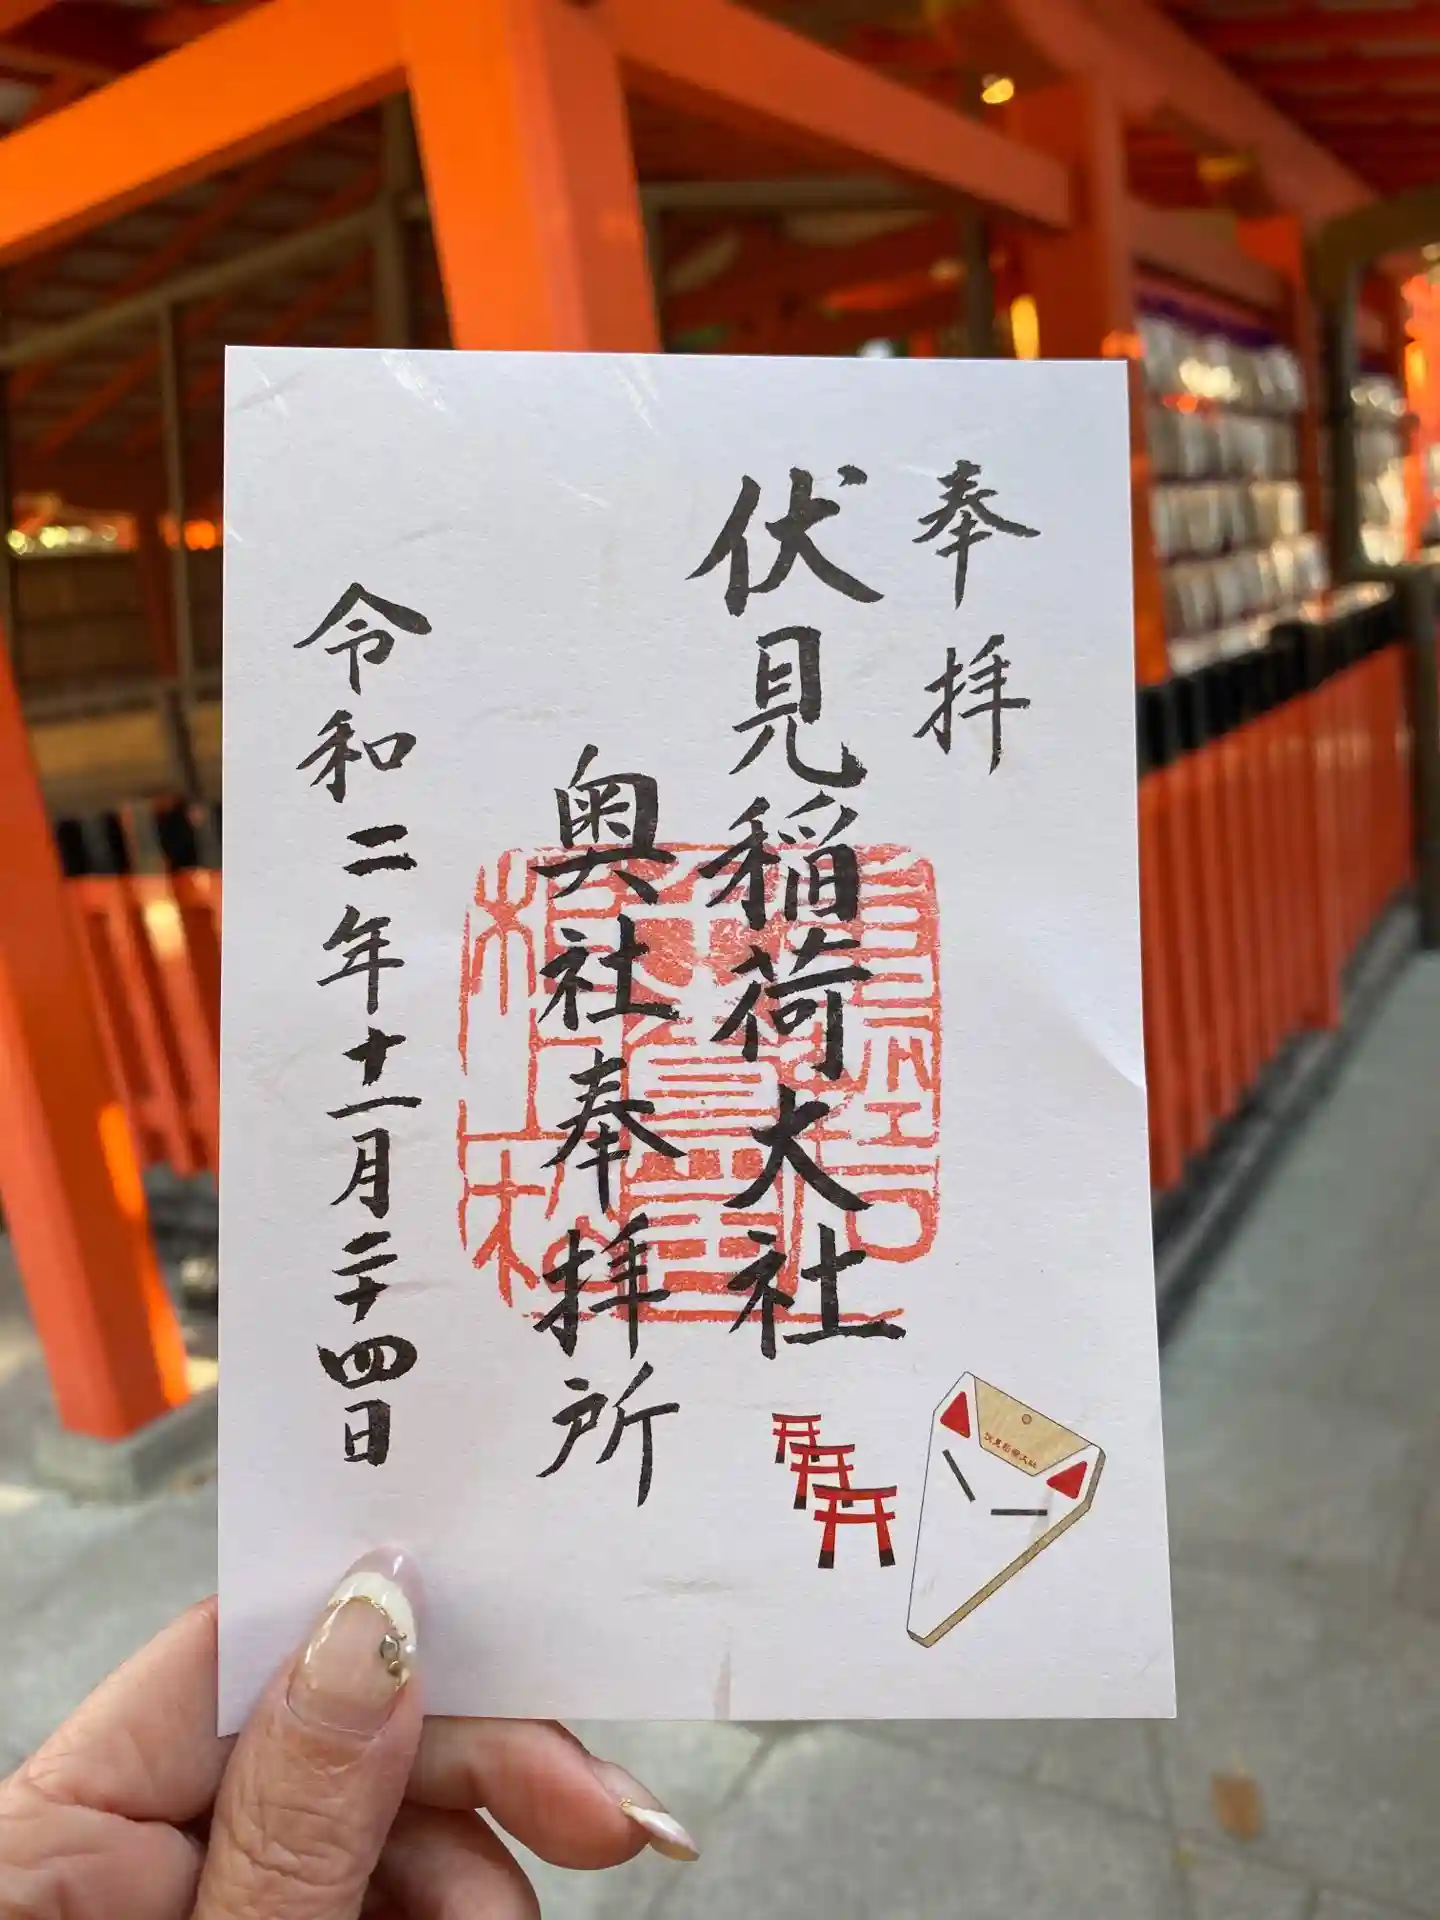 奉拝
伏見稲荷大社
奥社奉拝所
令和二年十一月二十四日
伏見稲荷大社